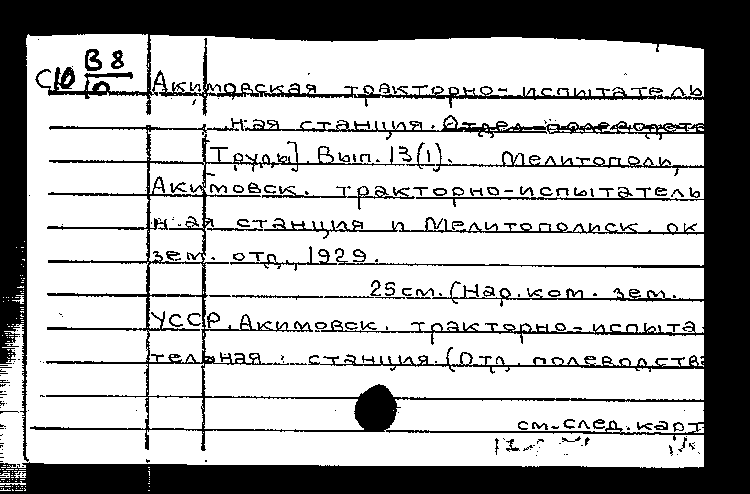 С10 В8/10 Акимовская тракторно-испытатель
ная станция. Отдел полеводств
[Труды]. Вып. 13(1). Мелитополь,
Акимовск. тракторно-испытатель
ная станция и Мелитопольск. ок
зем. отд., 1929.
25 см. (Нар. ком. зем.
УССР. Акимовск. тракторно-испыта
тельная станция. (Отд. полеводства
см. след. карт